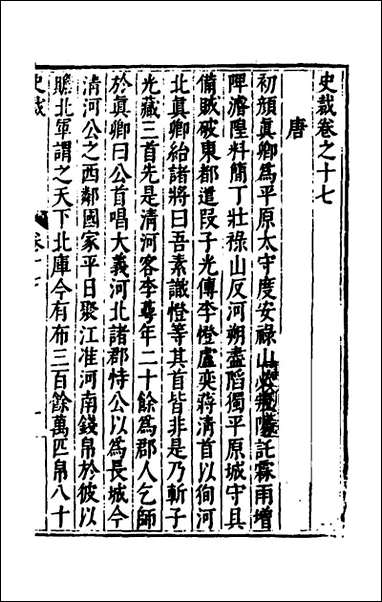 史裁卷之十七
唐
初顏真卿為平原太守度安祿山必叛託霖雨增
陴濬隍料簡丁壯祿山反河朔盡䧟獨平原城守具
備賊破東都遣段子光傳李憕盧奕蔣清首以徇河
北真卿紿諸將曰吾素識憕等其首皆非是乃斬子
光藏三首先是清河客李萼年二十餘為郡人乞師
於真卿曰公首唱大義河北諸郡恃公以為長城今
清河公之西鄰國家平日聚江淮河南錢帛於彼以
贍北軍謂之天下北庫今有布三百餘萬匹帛八十
史裁
卷十七